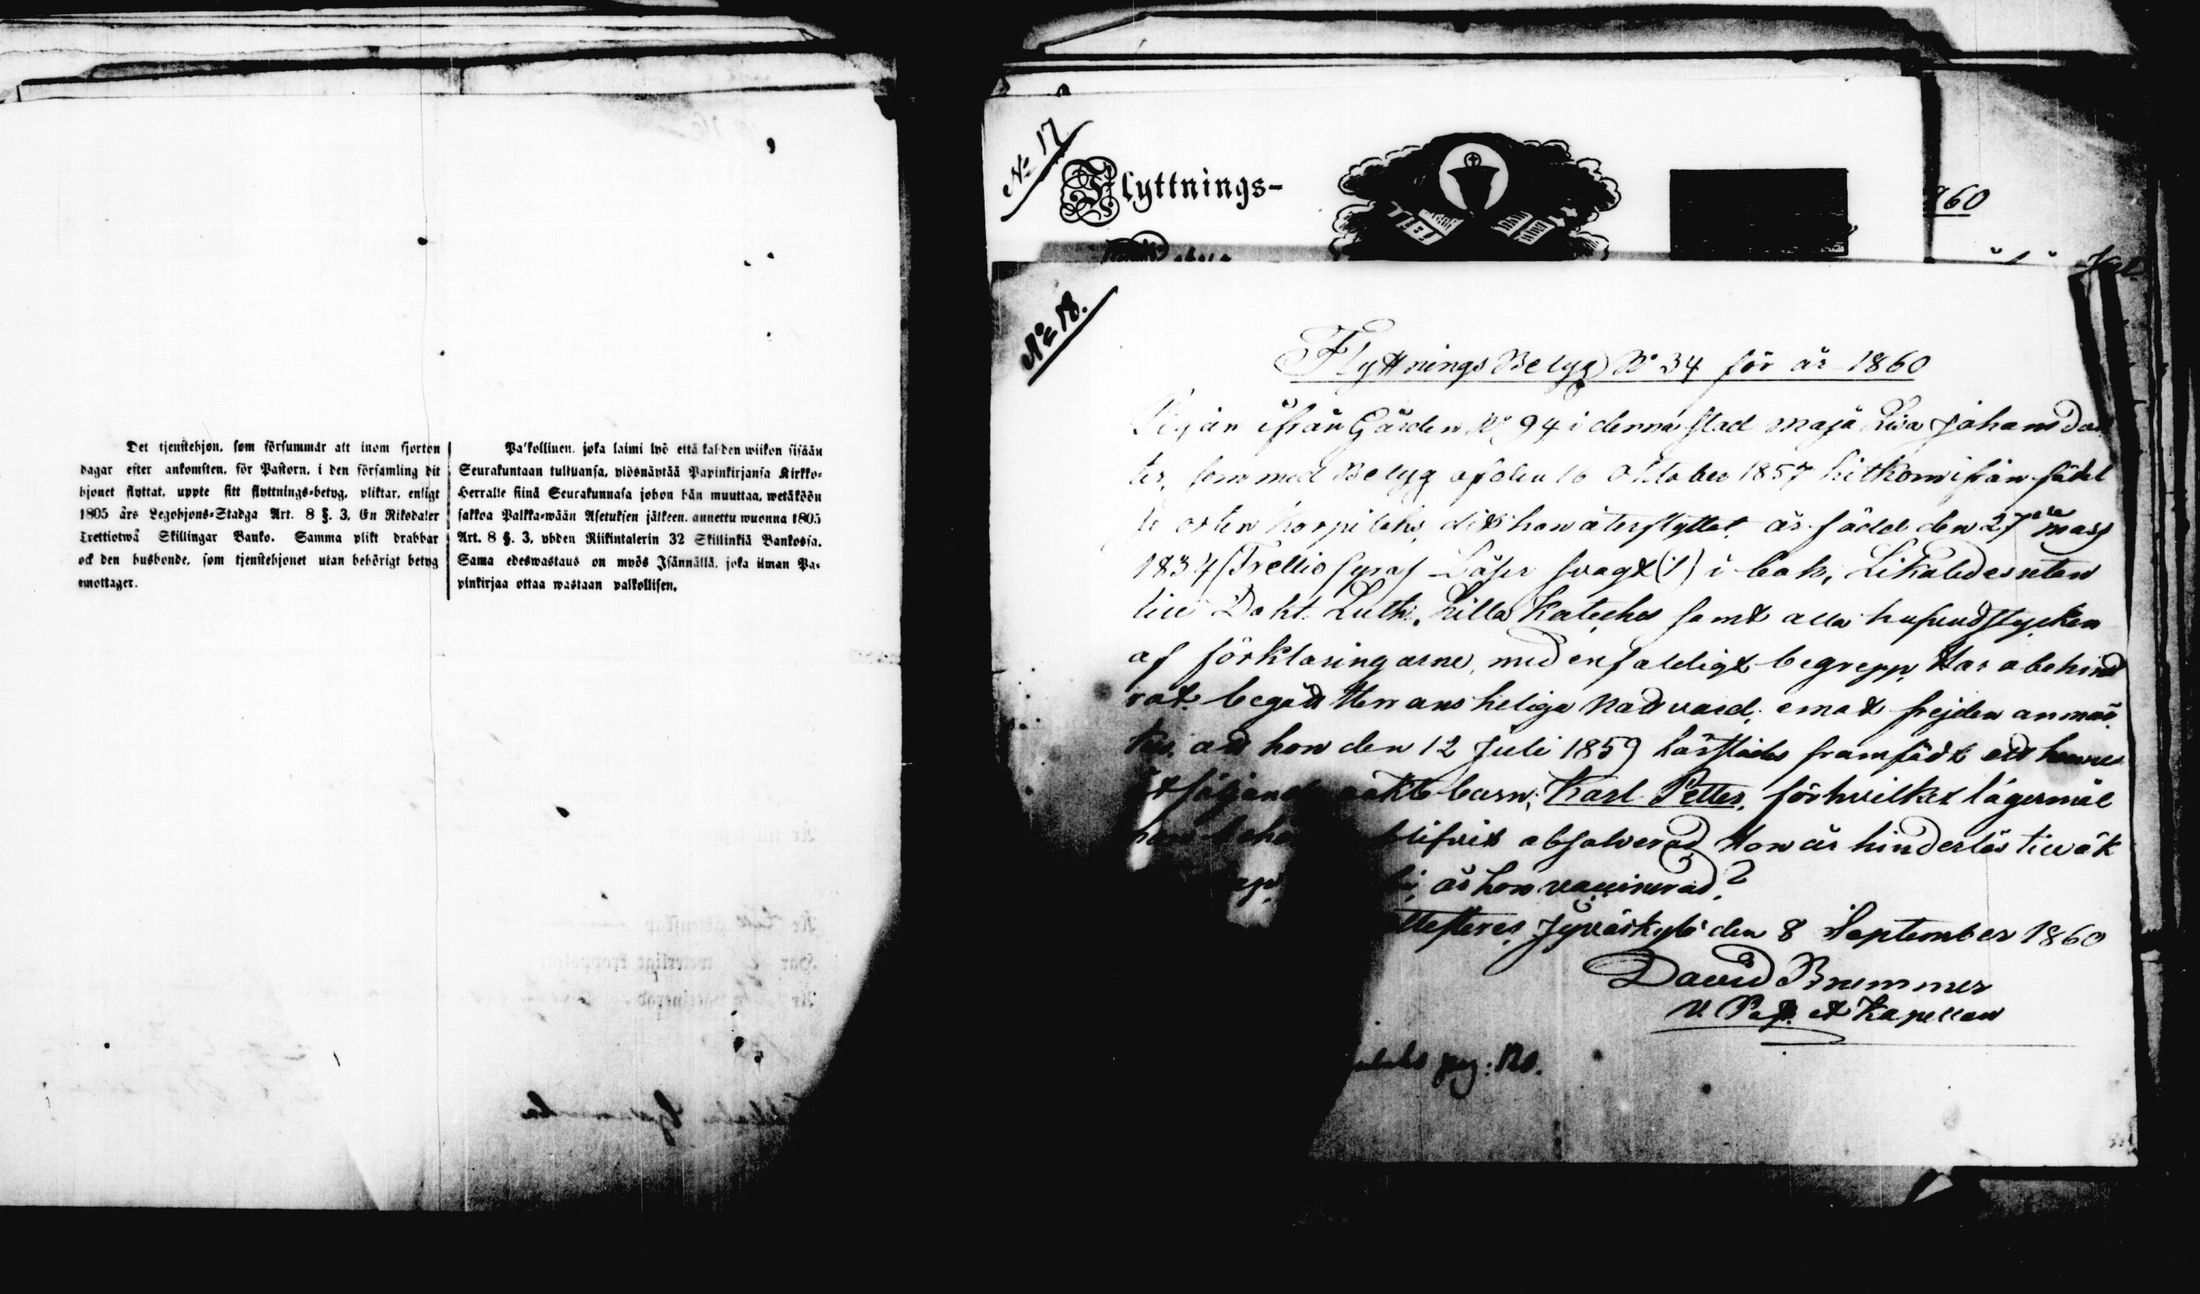 Det tjenstehjon, som försummar att inom fjorton
dagar efter ankomsten, för Pastorn, i den församling dit
hjonet flyttat, uppte sitt flyttnings-betyg, pliktar, enligt
1805 års Legohjons-Stadga Art. 8 §. 3, En Riksdaler
Trettiotwå Skillingar Banko. Samma plikt drabbar
ock den husbonde, som tjenstehjonet utan behörigt betyg
emottager.
Pa'kollinen, joka laimi lyö että kahden wiikon sisään
Seurakuntaan tultuansa, ylösnäytää Papinkirjansa Kirkko-
Herralle siinä Seurakunnasa johon hän muuttaa, wetäköön
sakkoa Palkka-wään Asetuksen jälkeen, annettu wuonna 1805
Art. 8 §. 3, yhden Riikintalerin 32 Skillinkiä Bankossa.
Sama edeswastaus on myös Isännällä, joka ilman Pa-
pinkirjaa ottaa wastaan palkollisen.
No 17
Flyttnings-
860
No 18.
Flyttnings Betyg No 34 för år 1860
Pigan ifrån Gården No 94 i denna stad Maja Lisa Johansdot
ter, som med Betyg af den 16 Oktober 1857 hitkom ifrån
Korpilaks, dit hon återflyttat, är född den 27de Mars
1834 (Trettiofyra) Läser svagt (1) i bok, Likaledes utan
till Dokt. Luth. Lilla Kateches samt alla hufvudstycken
af förklaringarne, med enfaldigt begrepp, Har obehind
rat begått Herrans heliga Nattvard, emot frejden anmär
kes, att hon den 12 Juli 1859 härstädes framfödt ett hennes
följand oäkta barn, Karl Petter, för hvilket lägersmål
blifvit absolverad, Hon är hinderlös till äk
är hon vaccinerad.
attesteras, Jyväskylä den 8 September 1860
David Brummer
V. Past. et Kapellan
pag: 120.